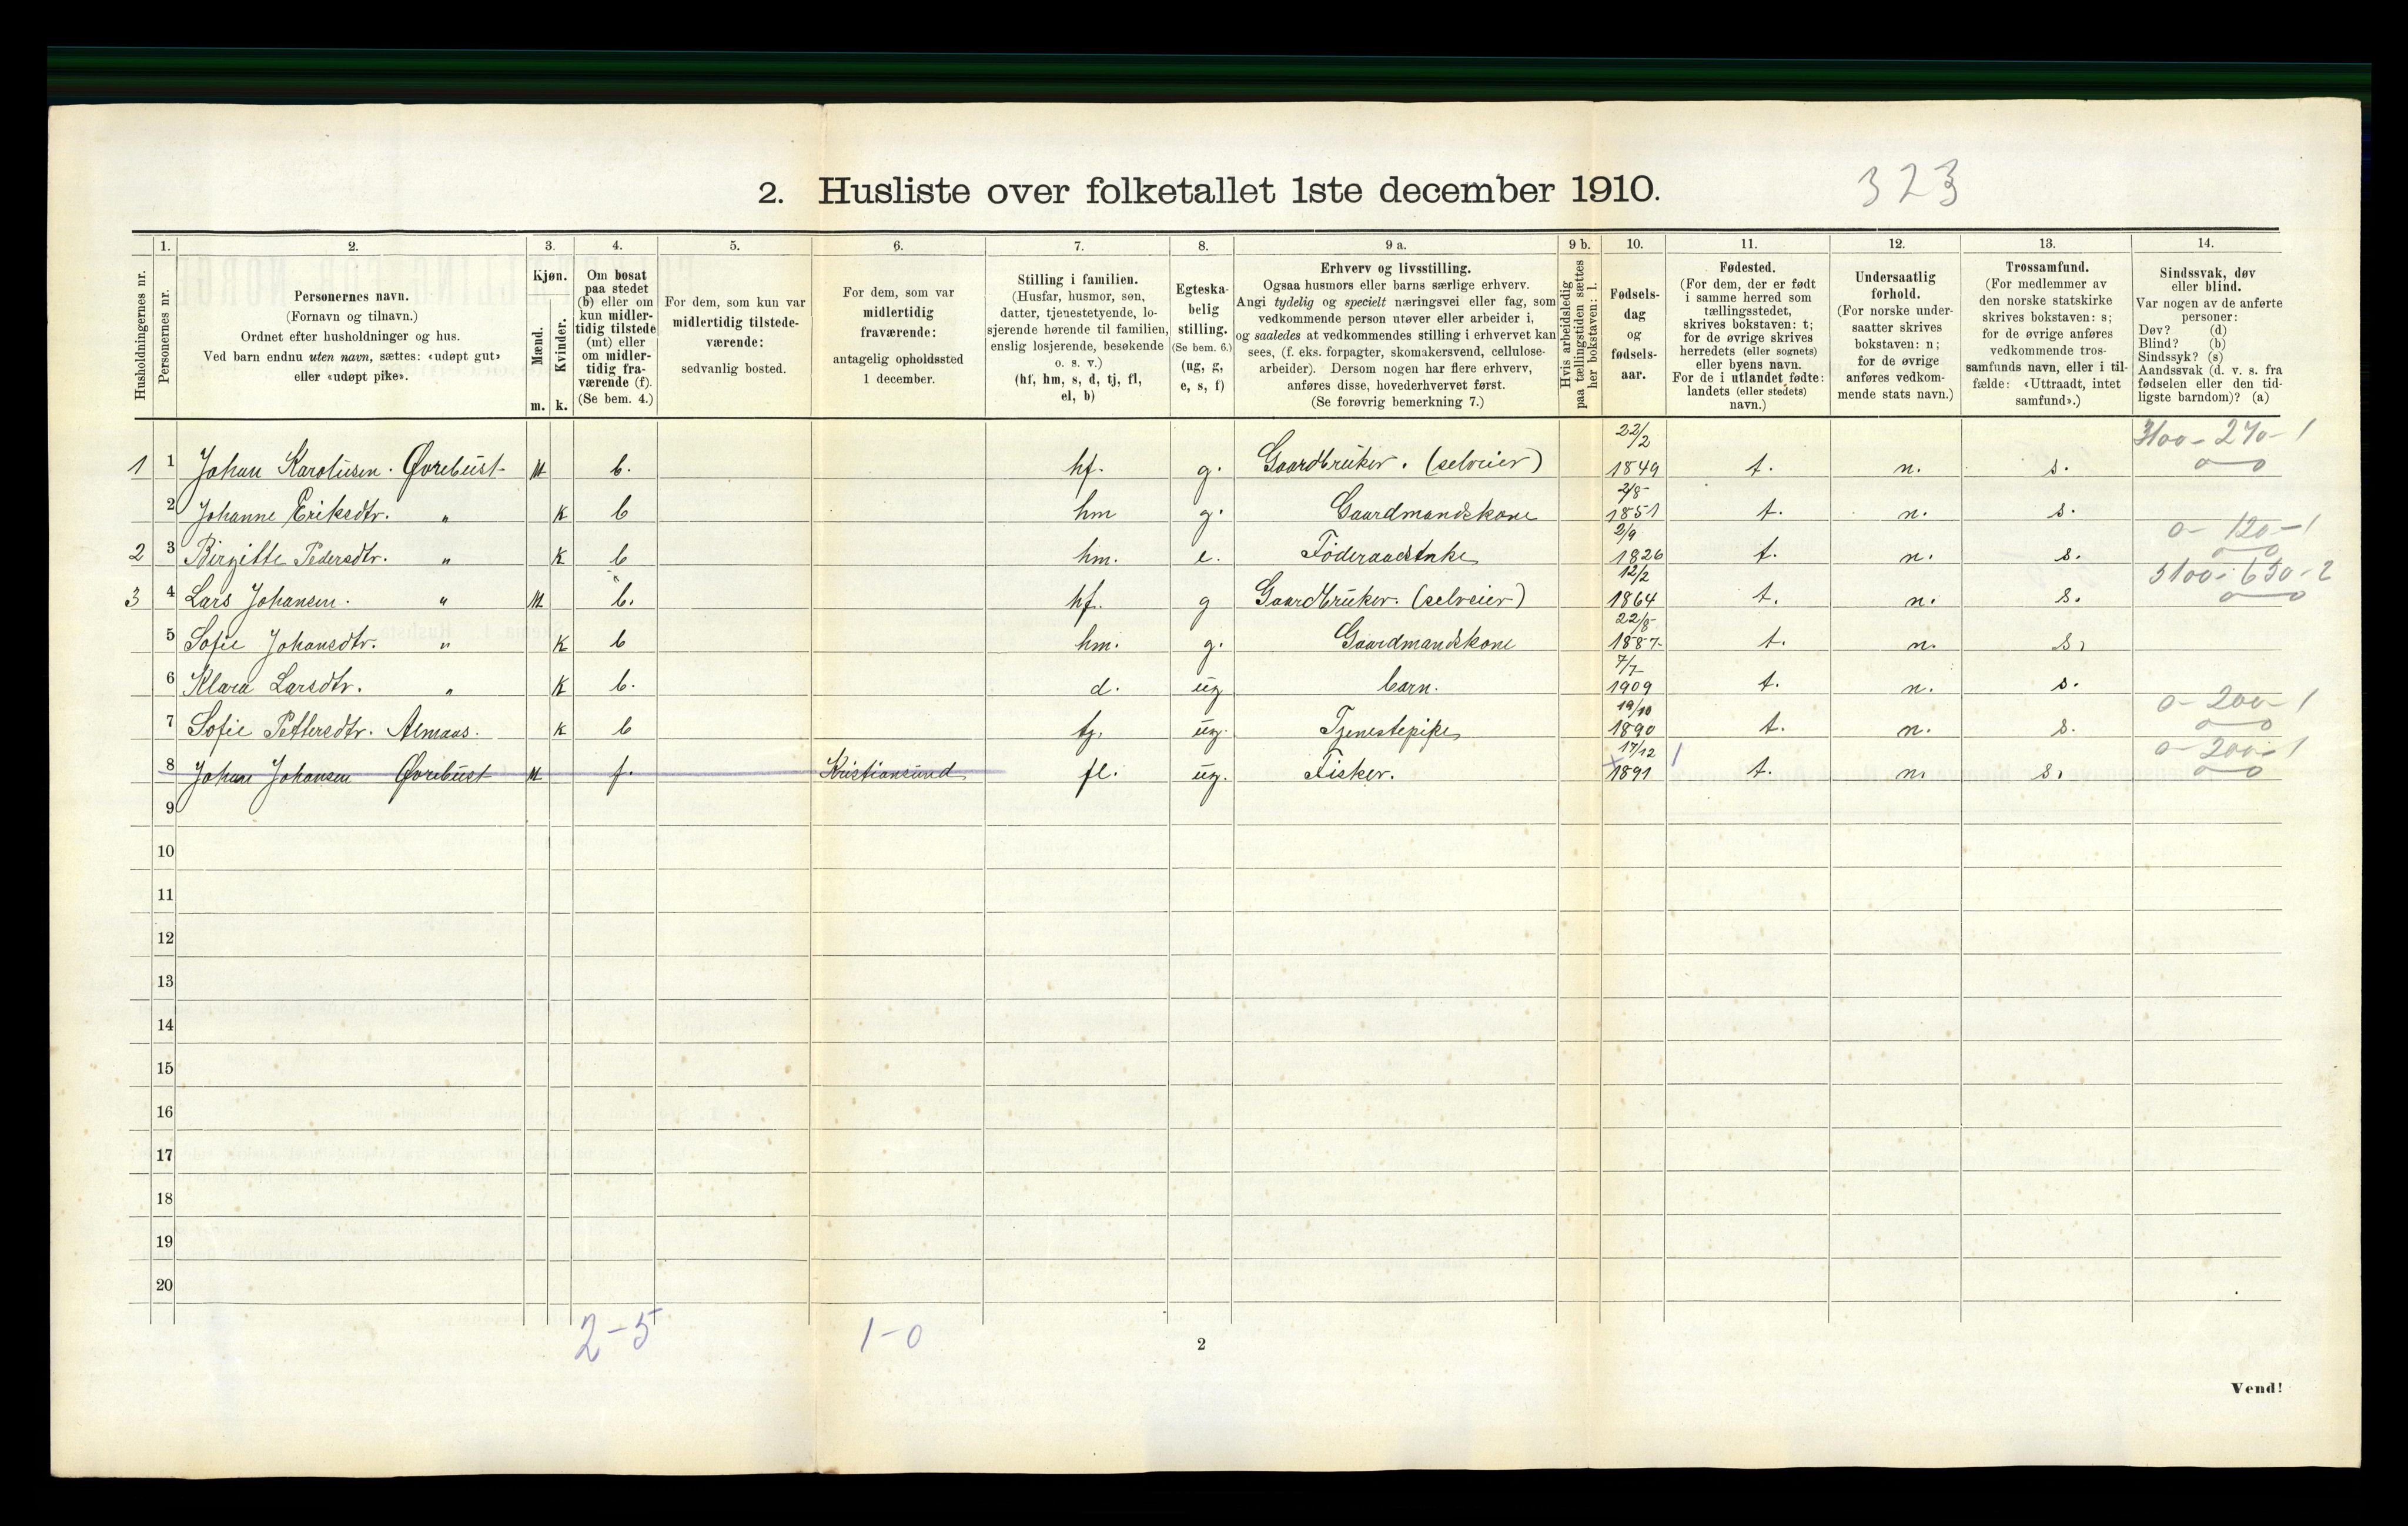 2. Husliste over folketallet 1ste december 1910.
323
1. 2. 3. 4. 5. 6. 7. 8. 9 a. 9 b. 10. 11. 12. 13. 14.
Husholdningernes nr.
Personernes nr.
Personernes navn.
(Fornavn og tilnavn.)
Ordnet efter husholdninger og hus.
Ved barn endnu uten navn, sættes: «udøpt gut»
eller «udøpt pike».
Kjøn.
Mænd.
Kvinder.
m. k.
Om bosat
paa stedet
(b) eller om
kun midler-
tidig tilstede
(mt) eller
om midler-
tidig fra-
værende (f).
(Se bem. 4.)
For dem, som kun var
midlertidig tilstede-
værende:
sedvanlig bosted.
For dem, som var
midlertidig
fraværende:
antagelig opholdssted
1 december.
Stilling i familien.
(Husfar, husmor, søn,
datter, tjenestetyende, lo-
sjerende hørende til familien,
enslig losjerende, besøkende
o. s. v.)
(hf, hm, s, d, tj, fl,
el, b)
Egteska-
belig
stilling.
(Se bem. 6.)
(ug, g,
e, s, f)
Erhverv og livsstilling.
Ogsaa husmors eller barns særlige erhverv.
Angi tydelig og specielt næringsvei eller fag, som
vedkommende person utøver eller arbeider i,
og saaledes at vedkommendes stilling i erhvervet kan
sees, (f. eks. forpagter, skomakersvend, cellulose-
arbeider). Dersom nogen har flere erhverv,
anføres disse, hovederhvervet først.
(Se forøvrig bemerkning 7.)
Hvis arbeidsledig
paa tællingstiden sættes
her bokstaven: l.
Fødsels-
dag
og
fødsels-
aar.
Fødested.
(For dem, der er født
i samme herred som
tællingsstedet,
skrives bokstaven: t;
for de øvrige skrives
herredets (eller sognets)
eller byens navn.
For de i utlandet fødte:
landets (eller stedets)
navn.)
Undersaatlig
forhold.
(For norske under-
saatter skrives
bokstaven: n;
for de øvrige
anføres vedkom-
mende stats navn.)
Trossamfund.
(For medlemmer av
den norske statskirke
skrives bokstaven: s;
for de øvrige anføres
vedkommende tros-
samfunds navn, eller i til-
fælde: «Uttraadt, intet
samfund».)
Sindssvak, døv
eller blind.
Var nogen av de anførte
personer:
Døv? (d)
Blind? (b)
Sindssyk? (s)
Aandssvak (d. v. s. fra
fødselen eller den tid-
ligste barndom)? (a)
1 1 Johan Karolusen. Øvrebust M b. hf. g. Gaardbruker. (selveier) 22/2 1849 t. n. s. 3100 - 270 - 1
2 Johanne Eriksdtr. " K b hm g. Gaardmandskone 2/8 1851 t. n. s.
2 3 Birgitte Pedersdtr. " K b hm. e. Føderaadsenke 2/9 1826 t. n. s. 0 - 120 - 1
3 4 Lars Johansen. " M b. hf. g Gaardbruker. (selveier) 12/2 1864 t. n. s. 5100 - 650 - 2
5 Sofie Johansdtr. " K b hm. g. Gaardmandskone 22/8 1887 t. n. s.
6 Klara Larsdtr. " K b. d. ug barn. 7/7 1909 t. n. s.
7 Sofie Pettersdtr. Almaas. K b tj. ug. Tjenestepike 19/10 1890 t. n. s. 0 - 200 - 1
8 Johan Johansen Øvrebust M f. Kristiansund fl. ug. Fisker. 17/12 1891 t. n. s. 0 - 200 - 1
9
10
11
12
13
14
15
16
17
18
19
20
2 - 5 1 - 0
2
Vend!